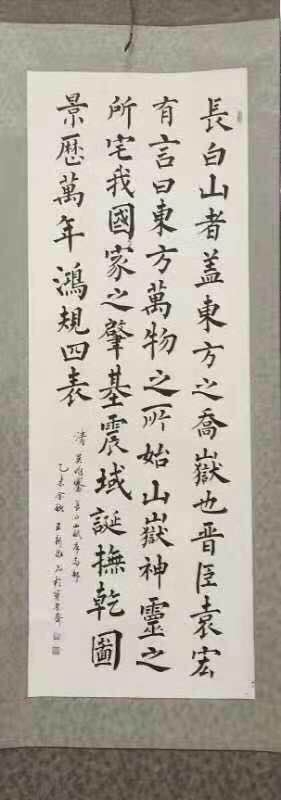 長白山者蓋東方之喬嶽也晋臣袁宏
有言曰東方萬物之所始山嶽神靈之
所宅我國家之肇基震域誕撫乾圖
景歷萬年鴻規四表
清 吴兆騫 長白山賦序局部
乙未金秋王